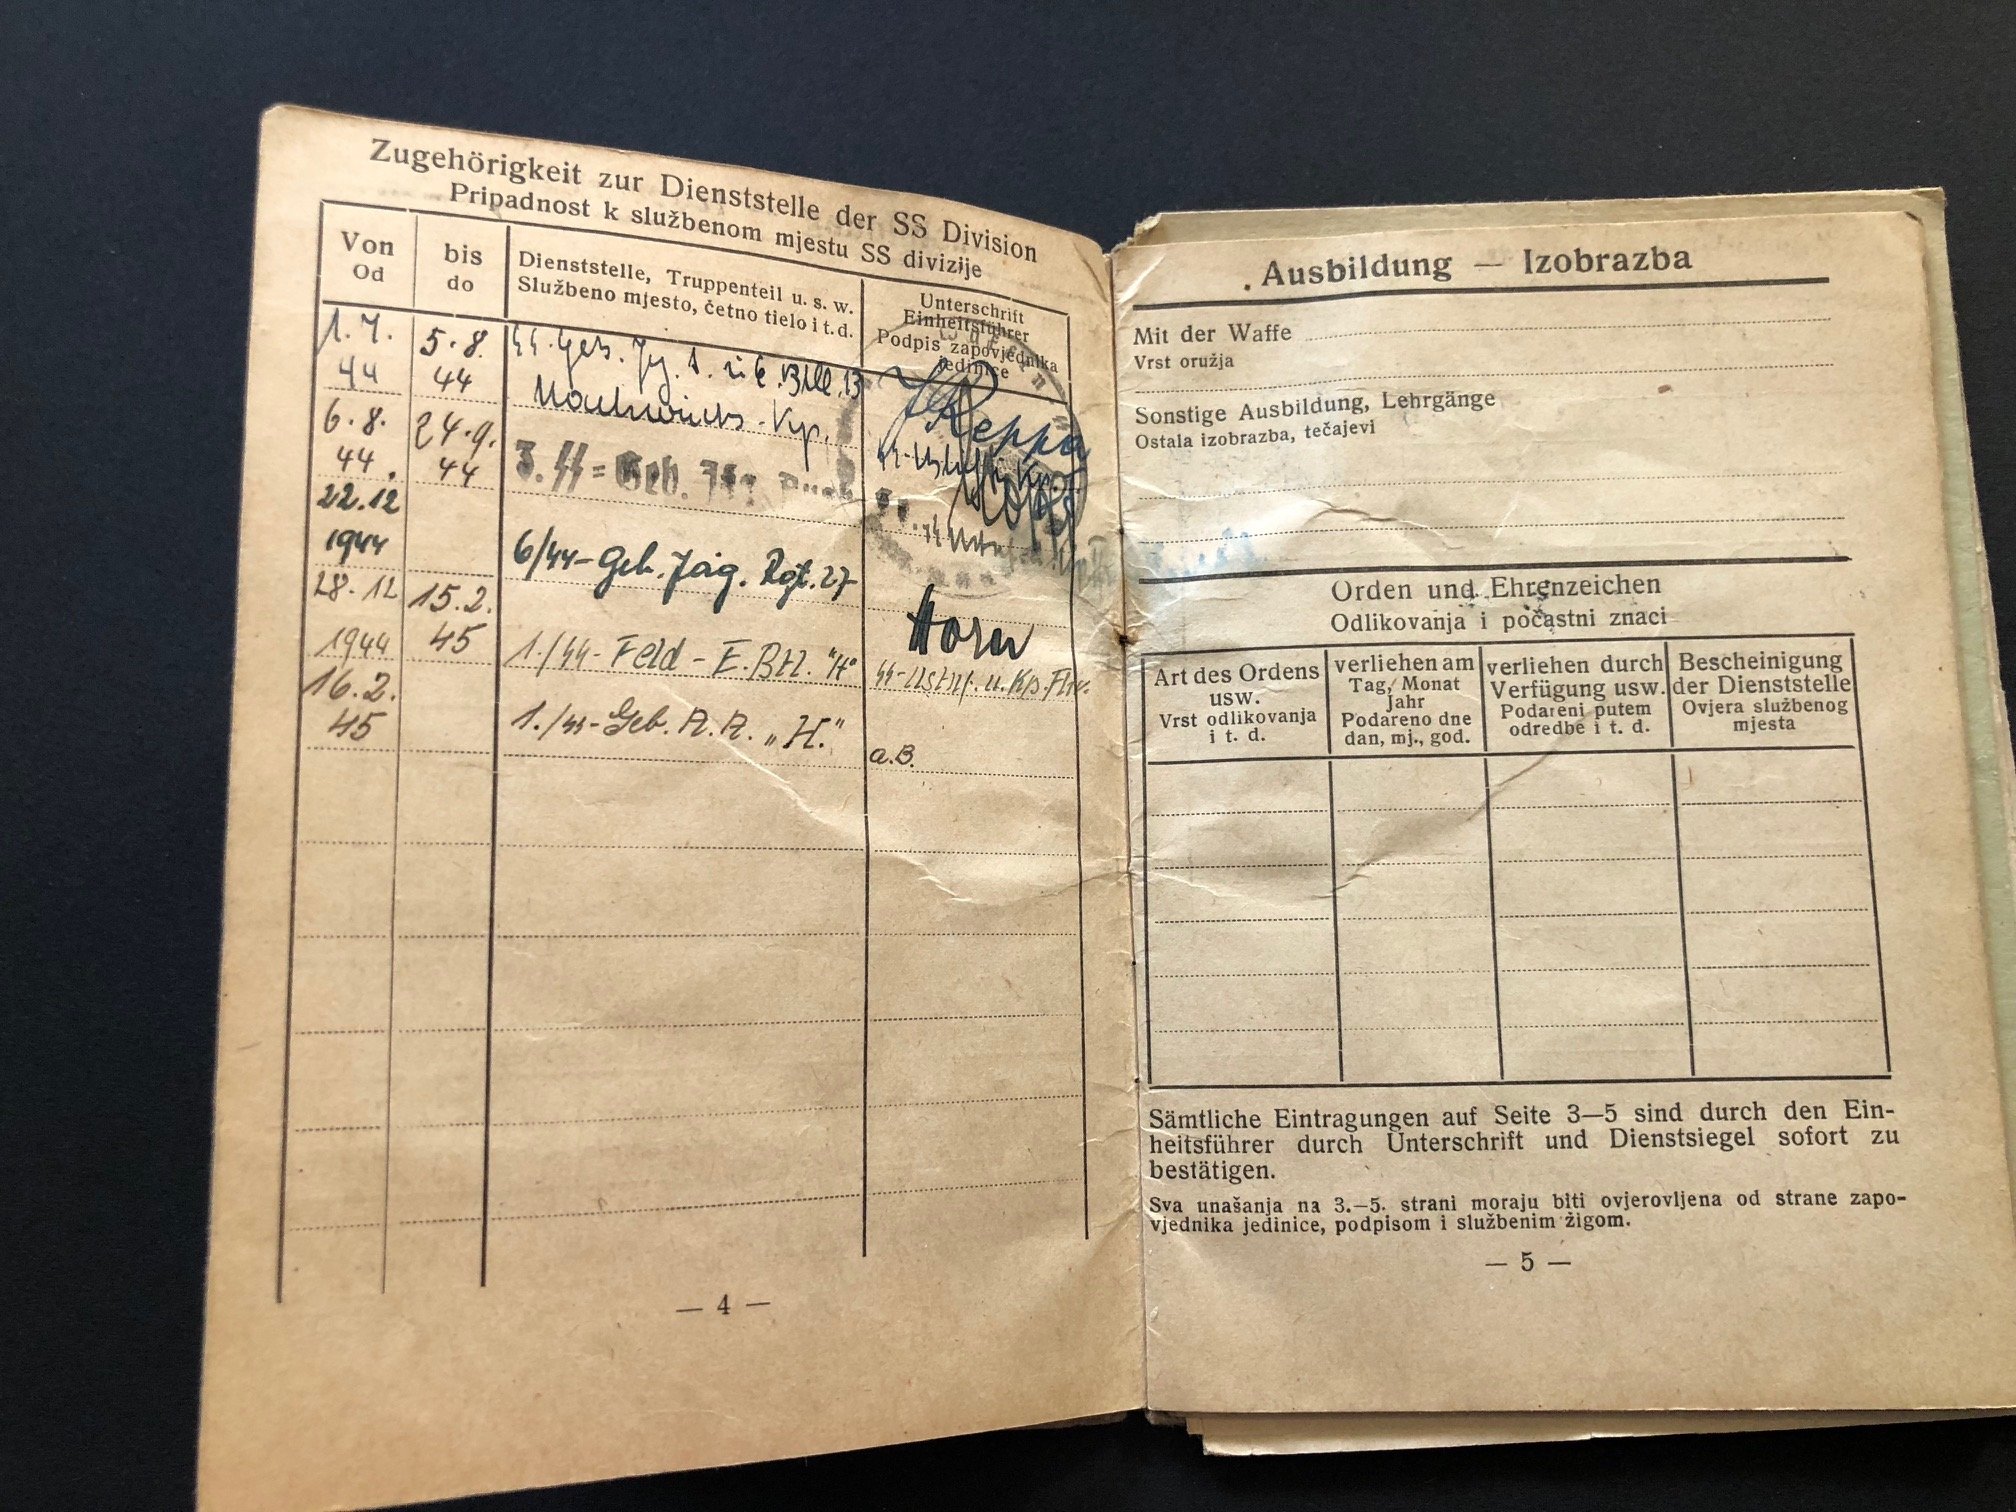 Zugehörigkeit zur Dienststelle der SS Division
Pripadnost k službenom mjestu SS divizije
Von
Od
bis
do
Dienststelle, Truppenteil u. s. w.
Službeno mjesto, četno tielo i t. d.
Unterschrift
Einheitsführer
Podpis zapovjednika
jedinice
1. 7.
44
5. 8.
44
SS. Geb. Jg.
6. 8.
44.
24. 9.
44
3. SS = Geb. Jäg.
Reppa
22.12
1944
6/SS-Geb. Jäg. Rgt. 27
28. 12
1944
15. 2.
45
1./SS- Feld - E. Btl. "H"
Horn
SS-Ustuf. u. Kp. Fhr.
16. 2.
45
1./SS-Geb. A. R. „H."
a.B.
— 4 —
Ausbildung — Izobrazba
Mit der Waffe
Vrst oružja
Sonstige Ausbildung, Lehrgänge
Ostala izobrazba, tečajevi
Orden und Ehrenzeichen
Odlikovanja i počastni znaci
Art des Ordens
usw.
Vrst odlikovanja
i t. d.
verliehen am
Tag, Monat
Jahr
Podareno dne
dan, mj., god.
verliehen durch
Verfügung usw.
Podareni putem
odredbe i t. d.
Bescheinigung
der Dienststelle
Ovjera službenog
mjesta
Sämtliche Eintragungen auf Seite 3—5 sind durch den Ein-
heitsführer durch Unterschrift und Dienstsiegel sofort zu
bestätigen.
Sva unašanja na 3.—5. strani moraju biti ovjerovljena od strane zapo-
vjednika jedinice, podpisom i službenim žigom.
— 5 —